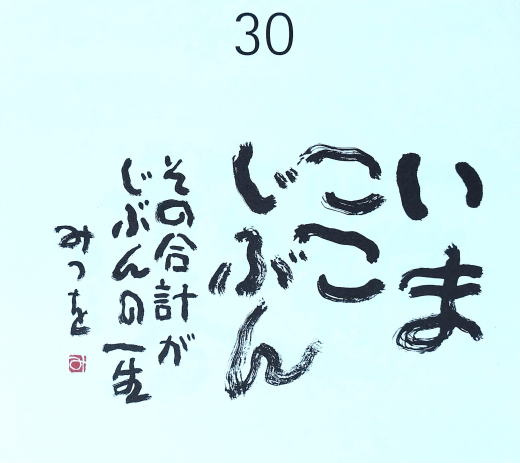 30
いま
ここ
じぶん
その合計が
じぶんの一生
みつを